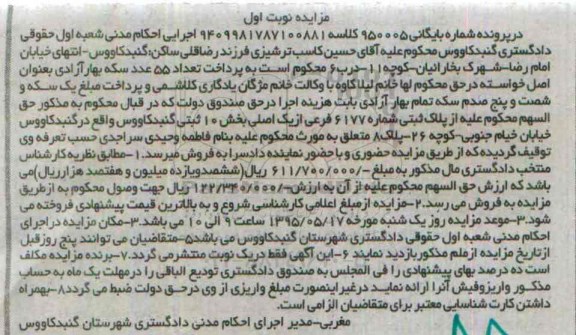 مزایده نوبت اول
درپرونده شماره بایگانی ۹۵۰۰۰۵ کلاسه ۹۴۰۹۹۸۱۷۸۷۱۰۰۸۸۱ اجرایی احکام مدنی شعبه اول حقوقی
دادگستری گنبدکاووس محکوم علیه آقای حسین کاسب ترشیزی فرزند رضاقلی ساکن: گنبدکاووس-انتهای خیابان
امام رضا-شهرک بخارائیان-کوچه ۱۱-درب ۶ محکوم است به پرداخت تعداد ۵۵ عدد سکه بهار آزادی بعنوان
اصل خواسته در حق محکوم لها خانم لیلا کاوه با وکالت خانم مژگان یادگاری کلاشمی و پرداخت مبلغ یک سکه و
شصت و پنج صدم سکه تمام بهار آزادی بابت هزینه اجرا درحق صندوق دولت که در قبال محکوم به مذکور حق
السهم محکوم علیه از پلاک ثبتی شماره ۶۱۷۷ فرعی از یک اصلی بخش ۱۰ ثبتی گنبدکاووس واقع در گنبدکاووس
خیابان خیام جنوبی-کوچه ۲۶-پلاک ۸ متعلق به مورث محکوم علیه بنام فاطمه وحیدی سراجدی حسب تعرفه وی
توقیف گردیده که از طریق مزایده حضوری و با حضور نماینده دادسرا به فروش میرسد.۱-مطابق نظریه کارشناس
منتخب دادگستری مال مذکور به مبلغ -/۶۱۱/۷۰۰/۰۰۰ ریال(ششصدویازده میلیون و هفتصد هزارریال)می
باشد که ارزش حق السهم محکوم علیه از آن به ارزش -/۱۲۲/۳۴۰/۰۰۰ ریال جهت وصول محکوم به از طریق
مزایده به فروش می رسد.۲-مزایده از مبلغ اعلامی کارشناسی شروع و به بالاترین قیمت پیشنهادی فروخته می
شود.۳-موعد مزایده روز یک شنبه مورخه ۱۳۹۵/۰۵/۱۷ ساعت ۹ الی ۱۰ می باشد.۴-مکان مزایده در اجرای
احکام مدنی شعبه اول حقوقی دادگستری شهرستان گنبدکاووس می باشد۵-متقاضیان می توانند پنج روز قبل
از تاریخ مزایده از ملم مذکور بازدید نمایند ۶-این آگهی فقط در یک نوبت منتشر می گردد.۷-برنده مزایده مکلف
است ده درصد بهای پیشنهادی را فی المجلس به صندوق دادگستری تودیع الباقی را در مهلت یک ماه به حساب
مذکور واریز و فیش آنرا ارائه نماید در غیر اینصورت مبلغ واریزی از وی در حق دولت ضبط می گردد۸-بهمراه
داشتن کارت شناسایی معتبر برای متقاضیان الزامی است.
مغربی-مدیر اجرای احکام مدنی دادگستری شهرستان گنبدکاووس